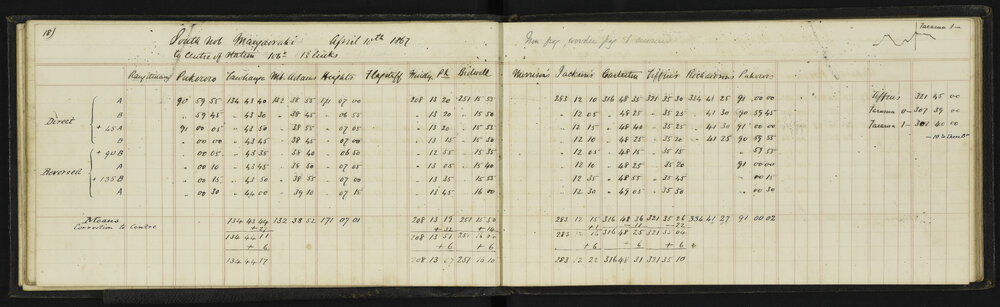 18)
South Nob Mangaoraki April 10th 1867
Tacarua 1
Rangitumau Pukororo Tawhanga Mt. Adams Heights Flagstaff Pk Bidwell Morrison's Jackson's Tiffin's Richardsons Pukororo
A 90 59 55 134 43 40 132 38 55 171 07 00 208 13 20 251 15 55 283 12 10 316 48 35 321 35 30 334 41 25 91 00 00 Tiffens 321 45 00
Direct B " 59 45 " 43 30 " 38 45 " 06 55 " 13 20 " 15 50 " 12 05 " 48 25 " 35 20 " 41 30 90 59 45 307 39 00
+ 45 A 91 00 05 " 43 50 " 38 55 " 07 05 " 13 20 " 15 55 " 12 15 " 48 40 " 35 25 " 41 30 91 00 00 Tacarua 1 302 40 00
B " 00 00 " 43 45 " 38 45 " 07 00 " 13 15 " 15 50 " 12 10 " 48 25 " 35 20 " 41 25 90 59 55
+ 90 B " 00 05 " 43 35 " 38 40 " 06 50 " 12 55 " 15 30 " 12 05 " 48 15 " 35 15 " 59 55
A " 00 10 " 43 45 " 38 50 " 07 05 " 13 05 " 15 40 " 12 10 " 48 25 " 35 20 91 00 00
Reversed + 135 B " 00 15 " 43 50 " 38 55 " 07 00 " 13 35 " 15 55 " 12 35 " 48 55 " 35 45 " 00 15
A " 00 30 " 44 00 " 39 10 " 07 15 " 13 45 " 16 00 " 12 30 " 49 05 " 35 50 " 00 30
Means 134 43 44 132 38 52 171 07 01 208 13 19 251 15 50 283 12 15 316 48 36 321 35 26 334 41 27 91 00 02
Correction to Centre + 27 + 32 + 14 + 1 - 11 - 22
134 44 11 208 13 51 251 16 04 283 12 16 316 48 25 321 35 04
+ 6 + 6 + 6 + 6 + 6 + 6
134 44 17 208 13 57 251 16 10 283 12 22 316 48 31 321 35 10